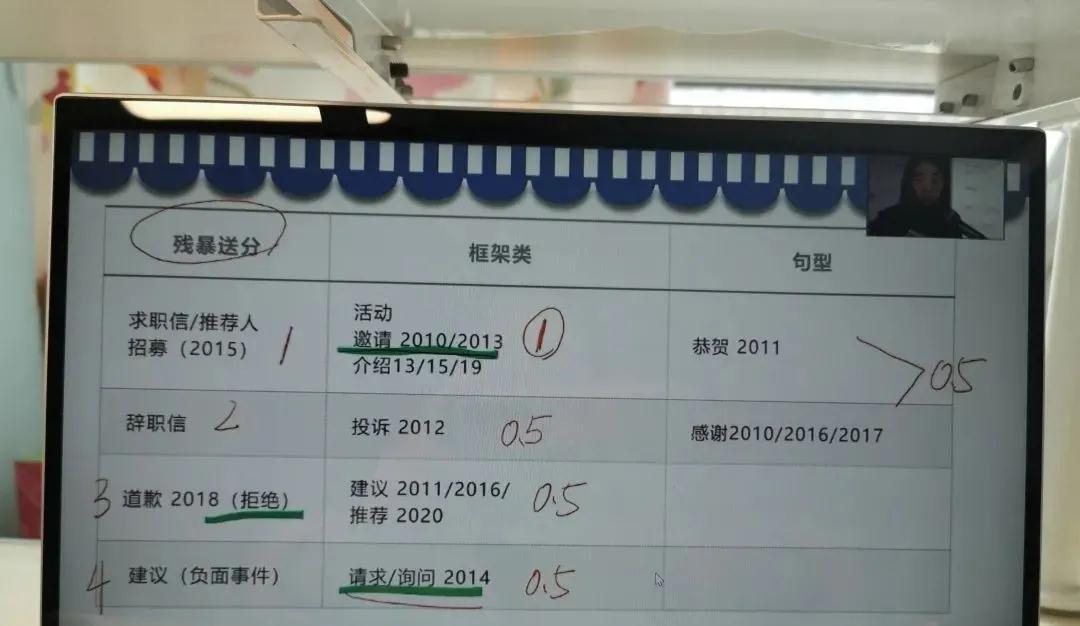 残暴送分
框架类
句型
求职信/推荐人
招募（2015）
1
活动
邀请 2010/2013
介绍13/15/19
1
恭贺 2011
0.5
辞职信
2
投诉 2012
0.5
感谢2010/2016/2017
3
道歉 2018（拒绝）
建议 2011/2016/
推荐 2020
0.5
4
建议（负面事件）
请求/询问 2014
0.5